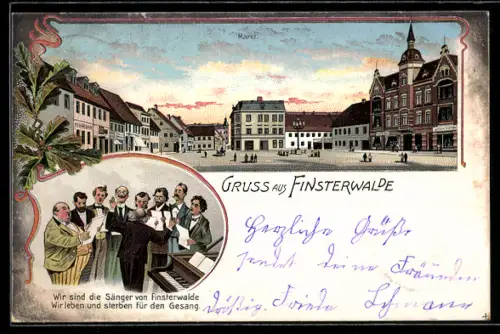 Markt.
GRUSS AUS FINSTERWALDE
Herzliche Grüße
sendet deine Freundin
Frieda Lehmann
Wir sind die Sänger von Finsterwalde
Wir leben und sterben für den Gesang.